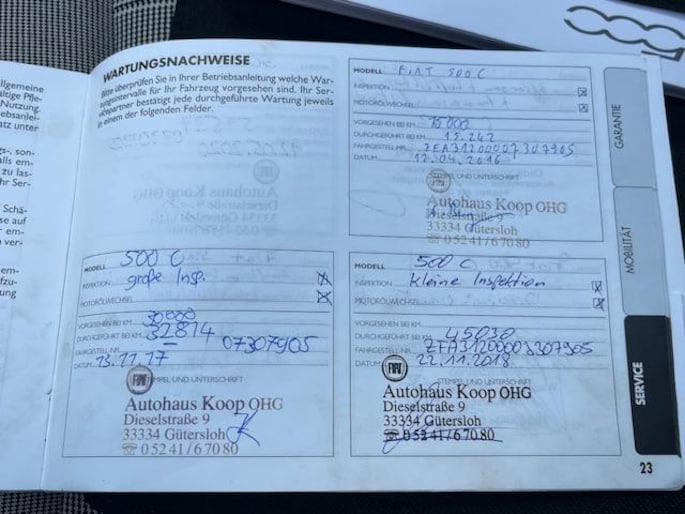 llgemeine
Nutzung
atz unter
WARTUNGSNACHWEISE
Bitte überprüfen Sie in Ihrer Betriebsanleitung welche War-
tungsintervalle für Ihr Fahrzeug vorgesehen sind. Ihr Ser-
vicepartner bestätigt jede durchgeführte Wartung jeweils
in einem der folgenden Felder.
MODELL FIAT 500 C
INSPEKTION
MOTORÖLWECHSEL
VORGESEHEN BEI KM 15000
DURCHGEFÜHRT BEI KM 15.242
FAHRGESTELL-NR. ZFA31200007307905
DATUM 12.04.2016
STEMPEL UND UNTERSCHRIFT
Autohaus Koop OHG
Dieselstraße 9
33334 Gütersloh
☏ 05241/67080
MODELL 500 C
INSPEKTION große Insp.
MOTORÖLWECHSEL
VORGESEHEN BEI KM 30000
DURCHGEFÜHRT BEI KM 32814
FAHRGESTELL-NR. 07307905
DATUM 13.11.17
FIAT
STEMPEL UND UNTERSCHRIFT
Autohaus Koop OHG
Dieselstraße 9
33334 Gütersloh
☏ 05241/67080
MODELL 500 C
INSPEKTION kleine Inspektion
MOTORÖLWECHSEL
VORGESEHEN BEI KM
DURCHGEFÜHRT BEI KM 45030
FAHRGESTELL-NR. ZFA31200003307905
DATUM 22.11.2018
FIAT
STEMPEL UND UNTERSCHRIFT
Autohaus Koop OHG
Dieselstraße 9
33334 Gütersloh
☏ 05241/67080
GARANTIE
MOBILITÄT
SERVICE
23